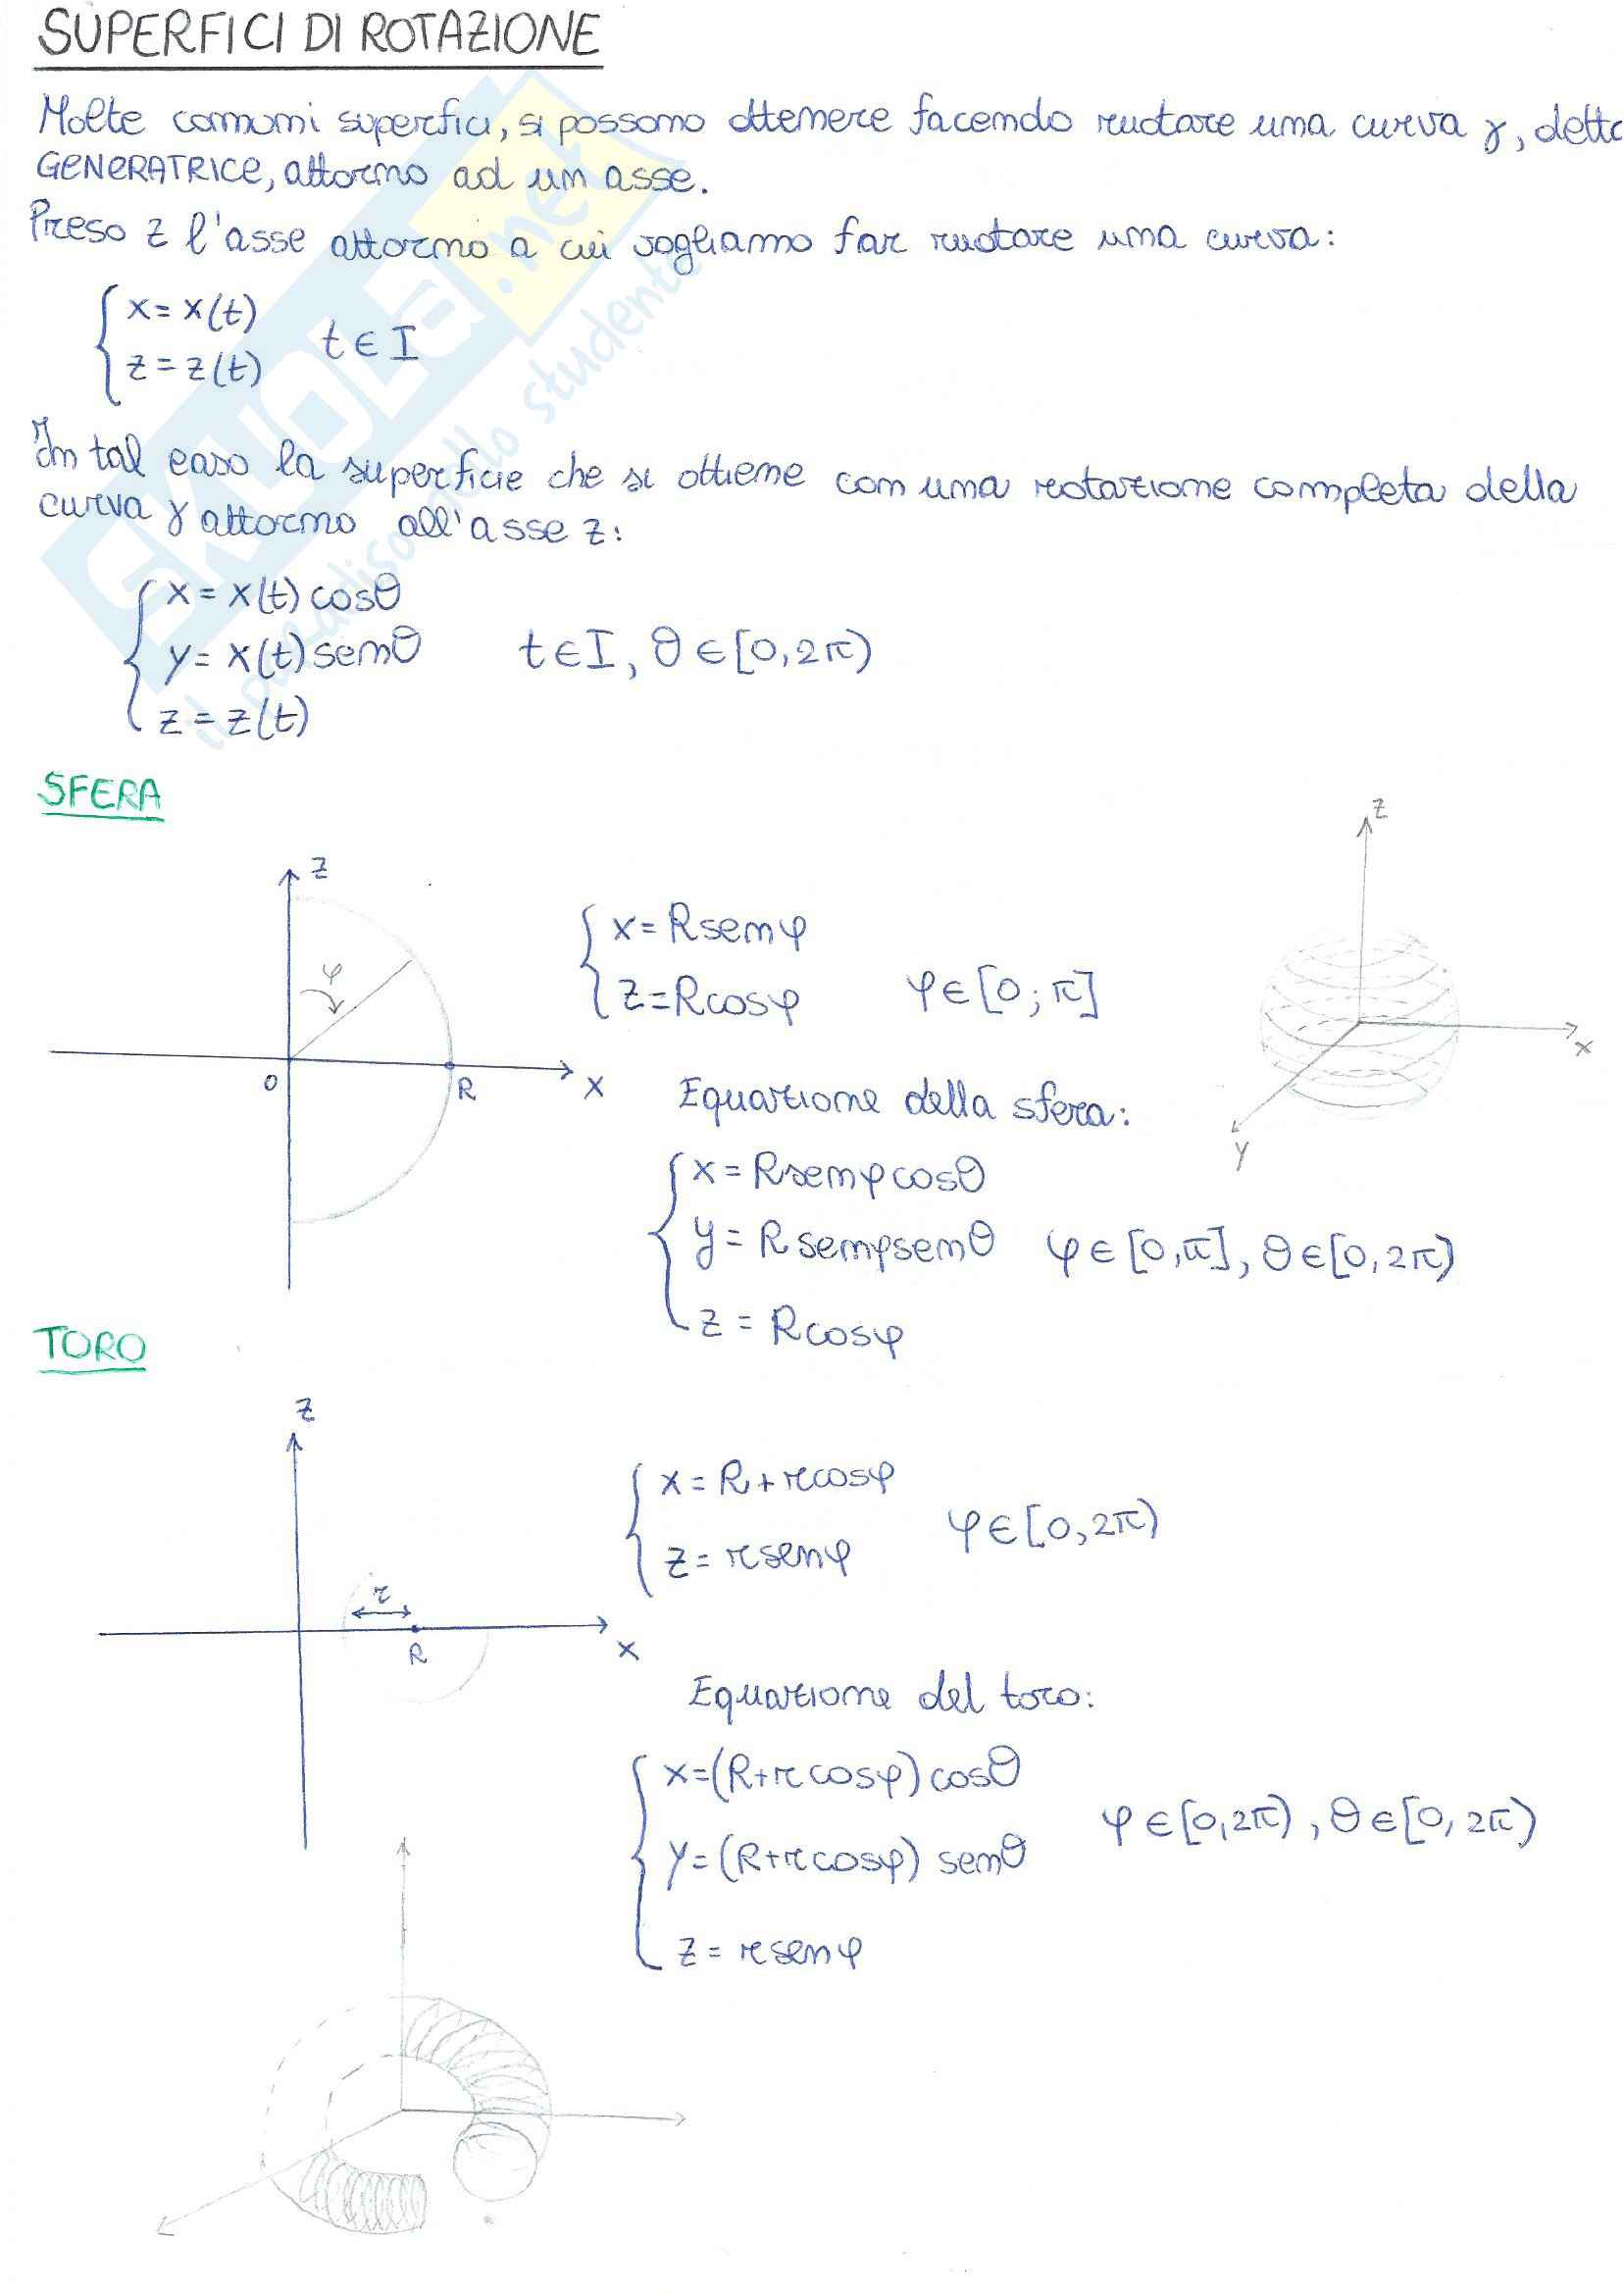 SUPERFICI DI ROTAZIONE
Molte comuni superfici, si possono ottenere facendo ruotare una curva γ, detta
GENERATRICE, attorno ad un asse.
Preso z l'asse attorno a cui vogliamo far ruotare una curva:
x = x(t)
z = z(t)
t ∈ I
In tal caso la superficie che si ottiene con una rotazione completa della
curva γ attorno all'asse z:
x = x(t) cosθ
y = x(t) senθ
z = z(t)
t ∈ I, θ ∈ [0, 2π)
SKUOLA.net
il paradiso dello studente
SFERA
z
φ
O
R
x
x = R senφ
z = R cosφ
φ ∈ [0; π]
z
x
y
Equazione della sfera:
x = R senφ cosθ
y = R senφ senθ
z = R cosφ
φ ∈ [0, π], θ ∈ [0, 2π)
TORO
z
r
R
x
x = R + r cosφ
z = r senφ
φ ∈ [0, 2π)
Equazione del toro:
x = (R + r cosφ) cosθ
y = (R + r cosφ) senθ
z = r senφ
φ ∈ [0, 2π), θ ∈ [0, 2π)